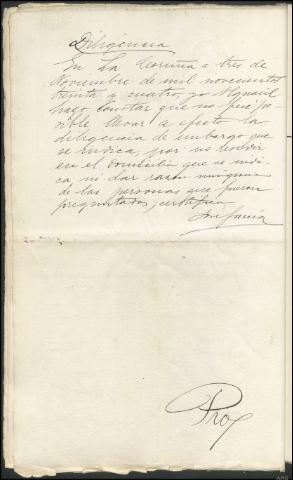 Diligencia
En La Coruña a tres de
Noviembre de mil novecientos
treinta y cuatro, yo Alguacil
hago constar que no fue po
sible llevar a efecto la
diligencia de embargo que
se indica, por no residir
en el domicilio que se indi
ca, ni dar razon ninguna
de las personas que fueron
preguntadas; certifico
José García
Pro